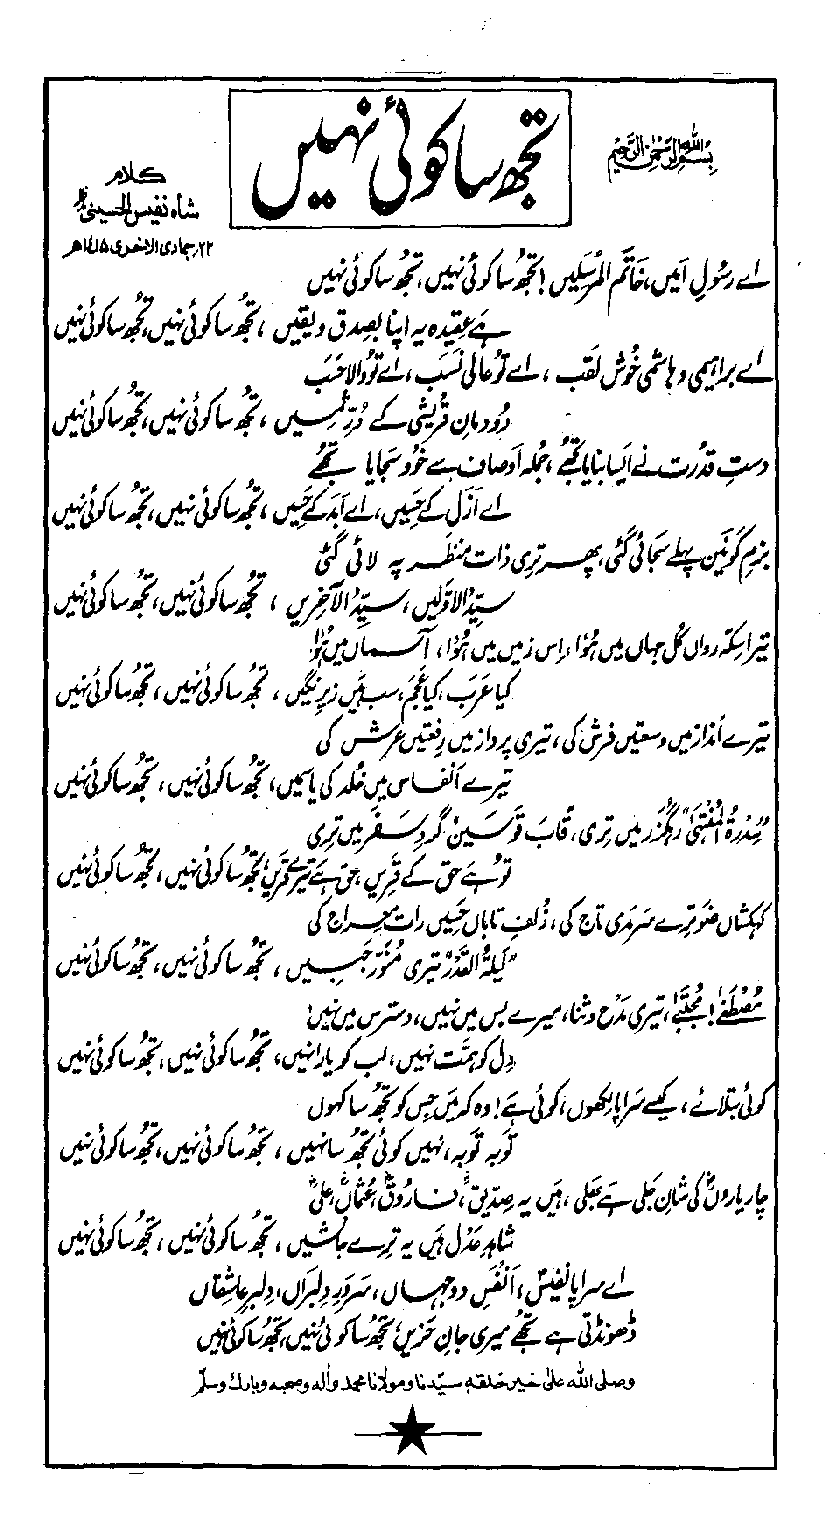 بسم اللہ الرحمٰن الرحیم
تجھ سا کوئی نہیں
کلام
شاہ نفیس الحسینیؒ
۲۲ رجمادی الاخری ۱۴۱۵ھ
اے رسولِ امیں، خاتم المرسلیں! تجھ سا کوئی نہیں، تجھ سا کوئی نہیں
ہے عقیدہ یہ اپنا بصدق و یقیں، تجھ سا کوئی نہیں، تجھ سا کوئی نہیں
اے براہیمی و ہاشمی خوش لقب، اے تو عالی نسب، اے تو والا حسب
دودمانِ قریشی کے دُرِّ ثمیں، تجھ سا کوئی نہیں، تجھ سا کوئی نہیں
دستِ قدرت نے ایسا بنایا تجھے، جملہ اوصاف سے خود سجایا تجھے
اے ازل کے حسیں، اے ابد کے حسیں، تجھ سا کوئی نہیں، تجھ سا کوئی نہیں
بزمِ کونین پہلے سجائی گئی، پھر تری ذات منظر پہ لائی گئی
سیّدُ الاوّلیں، سیّدُ الآخریں، تجھ سا کوئی نہیں، تجھ سا کوئی نہیں
تیرا سکہ رواں کُل جہاں میں ہُوا، اِس زمیں میں ہُوا، آسماں میں ہُوا
کیا عرب، کیا عجم، سب ہیں زیرِ نگیں، تجھ سا کوئی نہیں، تجھ سا کوئی نہیں
تیرے انداز میں وسعتیں فرش کی، تیری پرواز میں رفعتیں عرش کی
تیرے انفاس میں خُلد کی یاسمیں، تجھ سا کوئی نہیں، تجھ سا کوئی نہیں
”سِدرۃُ المنتہیٰ“ رہگزر میں تری، قابَ قوسین گردِ سفر میں تری
تو ہے حق کے قریں، حق ہے تیرے قریں، تجھ سا کوئی نہیں، تجھ سا کوئی نہیں
کہکشاں ضو ترے سرمدی تاج کی، زُلفِ تاباں حسیں رات معراج کی
”لیلۃُ القدر“ تیری منوّر جبیں، تجھ سا کوئی نہیں، تجھ سا کوئی نہیں
مصطفیٰ! مجتبیٰ، تیری مدح و ثنا، میرے بس میں نہیں، دسترس میں نہیں!
دِل کو ہمّت نہیں، لب کو یارا نہیں، تجھ سا کوئی نہیں، تجھ سا کوئی نہیں
کوئی بتلائے، کیسے سراپا لکھوں، کوئی ہے! وہ کہ میں جس کو تجھ سا کہوں
توبہ توبہ، نہیں کوئی تجھ سا نہیں، تجھ سا کوئی نہیں، تجھ سا کوئی نہیں
چار یاروںؓ کی شان جلی ہے بھلی، ہیں یہ صدیقؓ، فاروقؓ، عثمانؓ، علیؓ
شاہدِ عدل ہیں یہ ترے جانشیں، تجھ سا کوئی نہیں، تجھ سا کوئی نہیں
اے سراپا نفیس، اَنفسِ دو جہاں، سرورِ دلبراں، دلبرِ عاشقاں
ڈھونڈتی ہے تجھے میری جانِ حزیں، تجھ سا کوئی نہیں، تجھ سا کوئی نہیں
وصلی اللہ علی خیر خلقہ سیّدنا و مولانا محمد و اٰلہ و صحبہ و بارک و سلّم